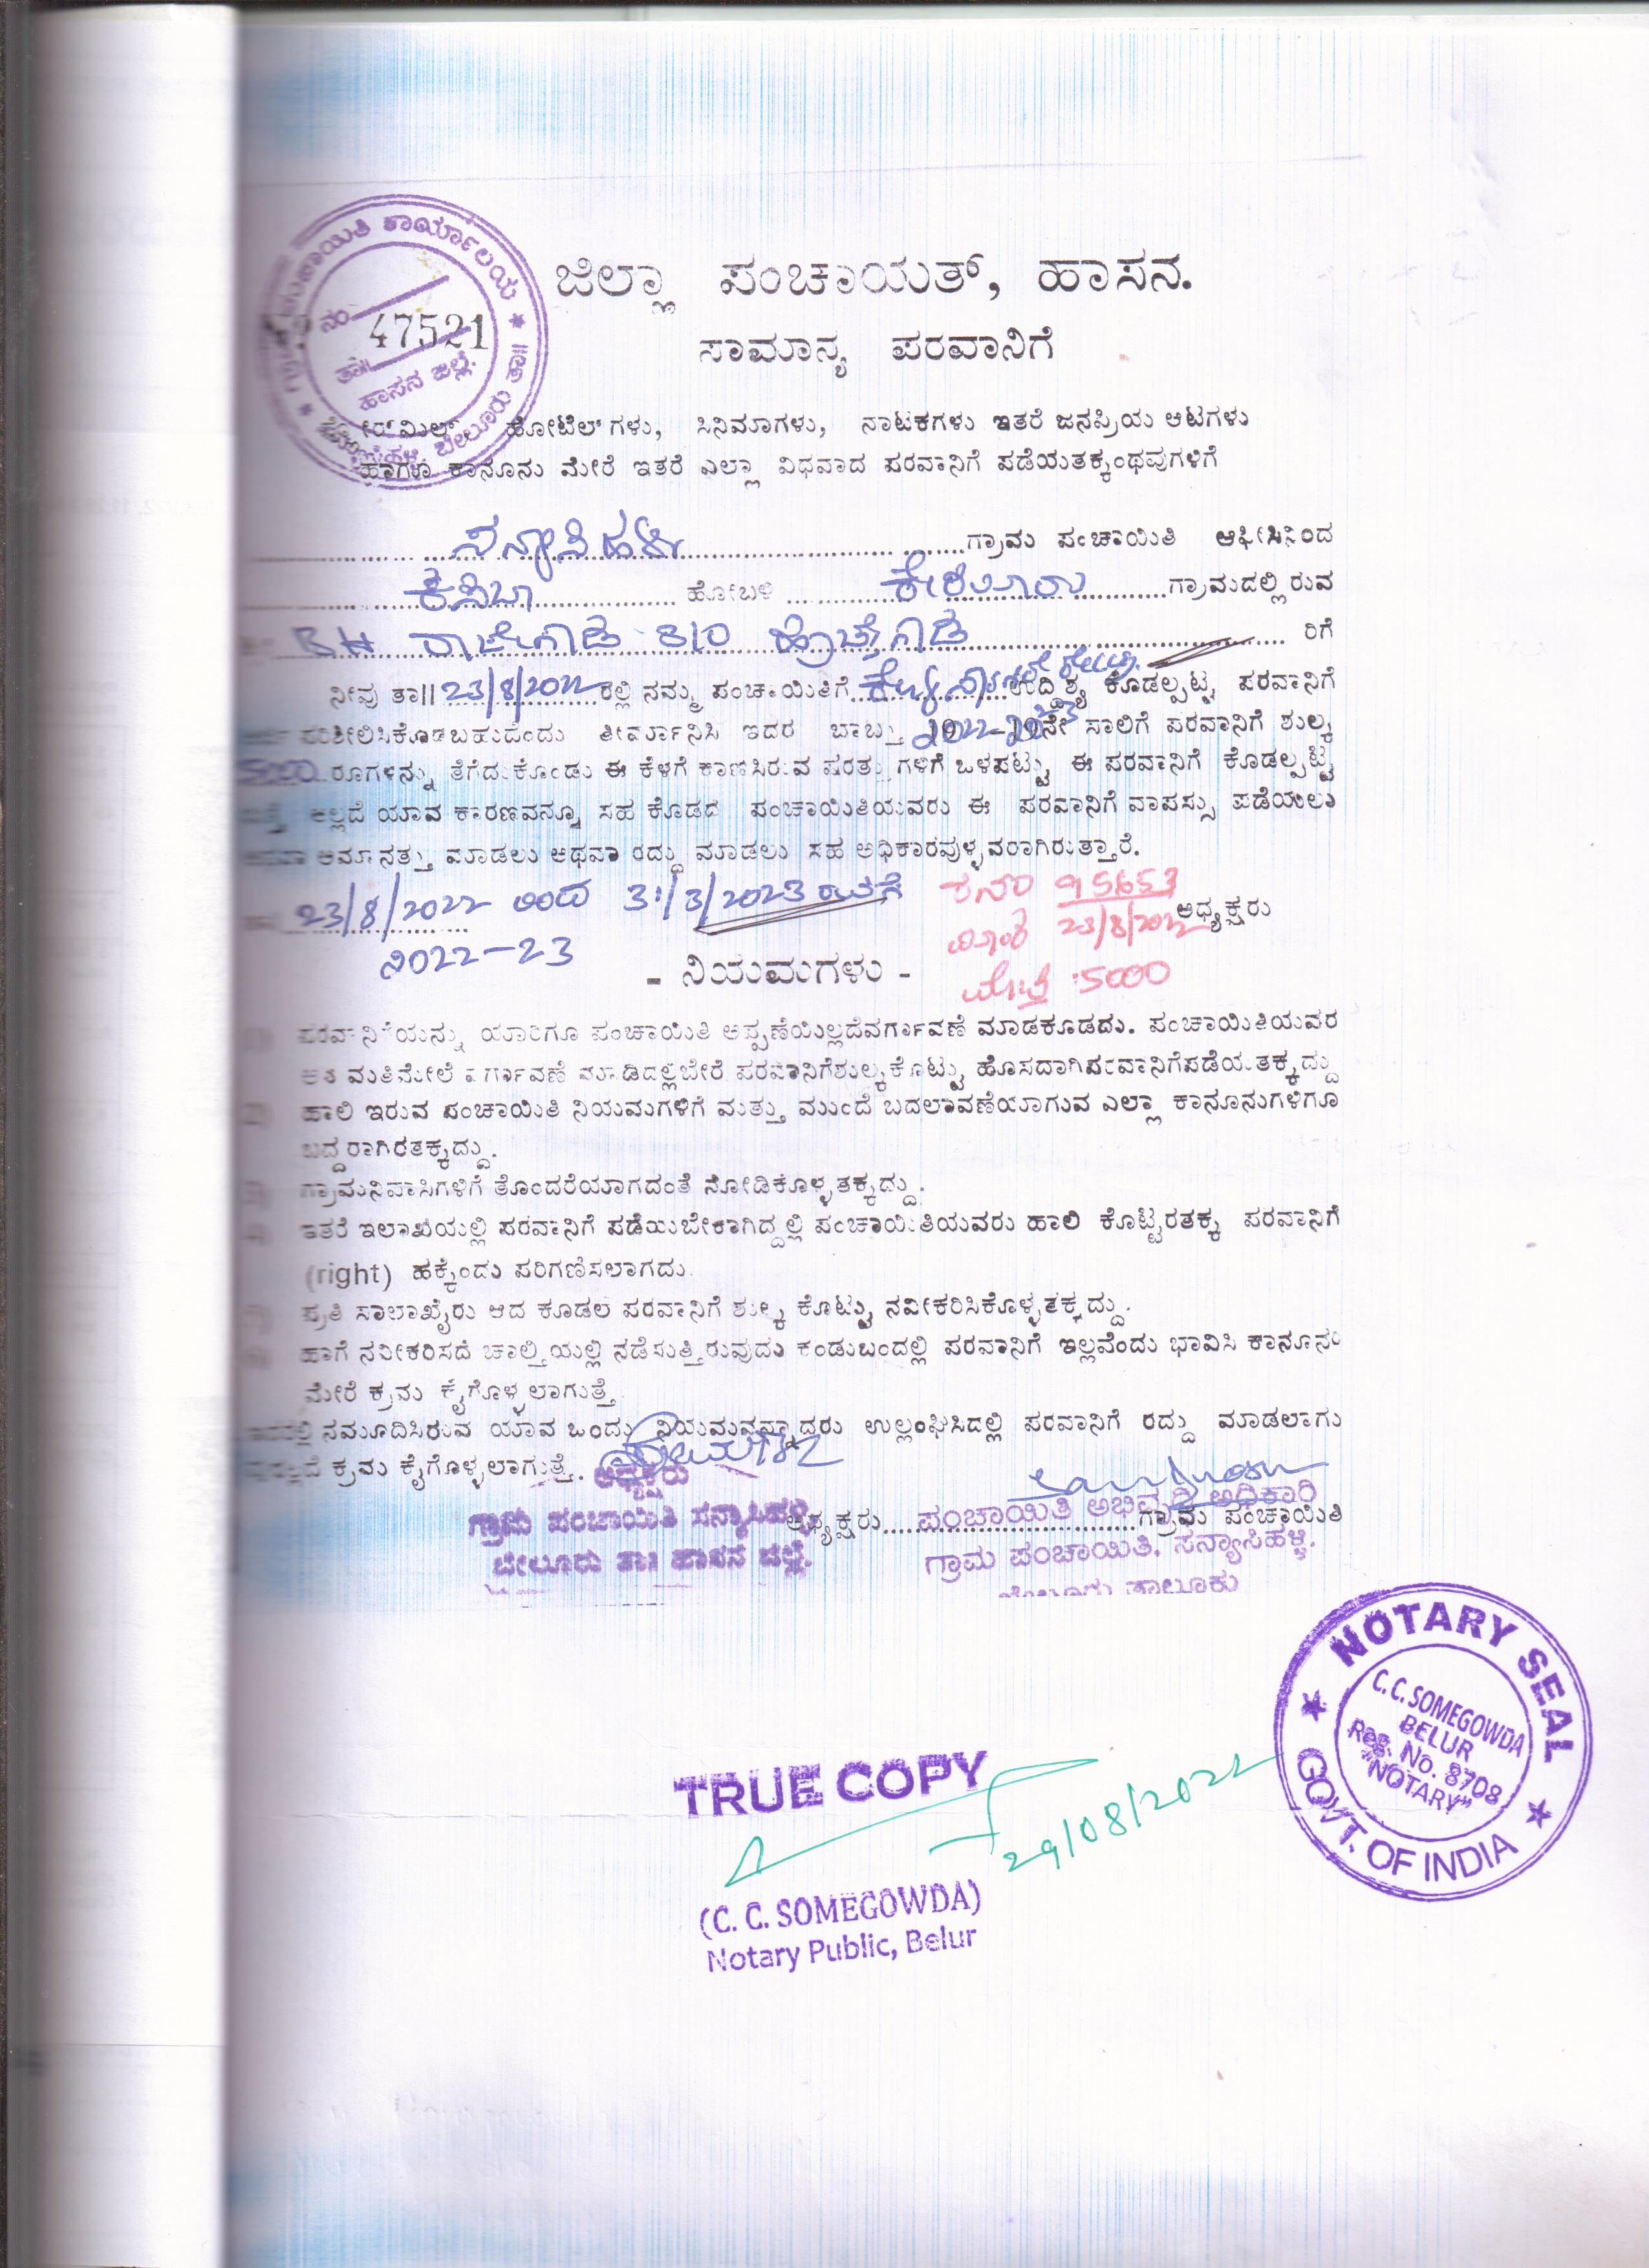 ಪಂಚಾಯಿತಿ ಕಾರ್ಯಾಲಯ
ನಂ
47521
ತಾ||
ಹಾಸನ ಜಿಲ್ಲೆ.
ಬೇಲೂರು ತಾ||
ಜಿಲ್ಲಾ ಪಂಚಾಯತ್, ಹಾಸನ.
ಸಾಮಾನ್ಯ ಪರವಾನಿಗೆ
ಹೋಟೆಲ್ ಗಳು, ಸಿನಿಮಾಗಳು, ನಾಟಕಗಳು ಇತರೆ ಜನಪ್ರಿಯ ಆಟಗಳು
ಹಾಗೂ ಕಾನೂನು ಮೇರೆ ಇತರೆ ಎಲ್ಲಾ ವಿಧವಾದ ಪರವಾನಿಗೆ ಪಡೆಯತಕ್ಕಂಥವುಗಳಿಗೆ
ಸನ್ಯಾಸಿಹಳ್ಳಿ ಗ್ರಾಮ ಪಂಚಾಯಿತಿ ಆಫೀಸಿನಿಂದ
ಕಸಬಾ ಹೋಬಳಿ ಗ್ರಾಮದಲ್ಲಿರುವ
BH ರಾಜೇಗೌಡ S/O ರಿಗೆ
ನೀವು ತಾ|| 23/8/2022 ರಲ್ಲಿ ನಮ್ಮ ಪಂಚಾಯಿತಿಗೆ ಉದ್ದಿಶ್ಯ ಕೊಡಲ್ಪಟ್ಟ ಪರವಾನಿಗೆ
ಪರಿಶೀಲಿಸಿಕೊಡಬಹುದೆಂದು ತೀರ್ಮಾನಿಸಿ ಇದರ ಬಾಬ್ತು 2022-2023 ನೇ ಸಾಲಿಗೆ ಪರವಾನಿಗೆ ಶುಲ್ಕ
5000 ರೂಗಳನ್ನು ತೆಗೆದುಕೊಂಡು ಈ ಕೆಳಗೆ ಕಾಣಿಸಿರುವ ಷರತ್ತುಗಳಿಗೆ ಒಳಪಟ್ಟು ಈ ಪರವಾನಿಗೆ ಕೊಡಲ್ಪಟ್ಟಿ
ಅಲ್ಲದೆ ಯಾವ ಕಾರಣವನ್ನೂ ಸಹ ಕೊಡದೆ ಪಂಚಾಯಿತಿಯವರು ಈ ಪರವಾನಿಗೆ ವಾಪಸ್ಸು ಪಡೆಯಲು
ಅಥವಾ ಅಮಾನತ್ತು ಮಾಡಲು ಅಥವಾ ರದ್ದು ಮಾಡಲು ಸಹ ಅಧಿಕಾರವುಳ್ಳವರಾಗಿರುತ್ತಾರೆ.
23/8/2022 ರಿಂದ 31/3/2023 ರವರೆಗೆ
ರಸೀದಿ 95653
ದಿನಾಂಕ 23/8/2022 ಅಧ್ಯಕ್ಷರು
2022-23
ಮೊತ್ತ :5000
- ನಿಯಮಗಳು -
ಪರವಾನಿಗೆಯನ್ನು ಯಾರಿಗೂ ಪಂಚಾಯಿತಿ ಅಪ್ಪಣೆಯಿಲ್ಲದೆ ವರ್ಗಾವಣೆ ಮಾಡಕೂಡದು. ಪಂಚಾಯಿತಿಯವರ
ಮತಿಮೇಲೆ ವರ್ಗಾವಣೆ ಮಾಡಿದಲ್ಲಿ ಬೇರೆ ಪರವಾನಿಗೆ ಶುಲ್ಕ ಕೊಟ್ಟು ಹೊಸದಾಗಿ ಪರವಾನಿಗೆ ಪಡೆಯತಕ್ಕದ್ದು
2) ಹಾಲಿ ಇರುವ ಪಂಚಾಯಿತಿ ನಿಯಮಗಳಿಗೆ ಮತ್ತು ಮುಂದೆ ಬದಲಾವಣೆಯಾಗುವ ಎಲ್ಲಾ ಕಾನೂನುಗಳಿಗೂ
ಬದ್ದರಾಗಿರತಕ್ಕದ್ದು.
3) ಗ್ರಾಮನಿವಾಸಿಗಳಿಗೆ ತೊಂದರೆಯಾಗದಂತೆ ನೋಡಿಕೊಳ್ಳತಕ್ಕದ್ದು.
4) ಇತರೆ ಇಲಾಖೆಯಲ್ಲಿ ಪರವಾನಿಗೆ ಪಡೆಯಬೇಕಾಗಿದ್ದಲ್ಲಿ ಪಂಚಾಯಿತಿಯವರು ಹಾಲಿ ಕೊಟ್ಟಿರತಕ್ಕ ಪರವಾನಿಗೆ
(right) ಹಕ್ಕೆಂದು ಪರಿಗಣಿಸಲಾಗದು.
ಪ್ರತಿ ಸಾಲಾಖೈರು ಆದ ಕೂಡಲೆ ಪರವಾನಿಗೆ ಶುಲ್ಕ ಕೊಟ್ಟು ನವೀಕರಿಸಿಕೊಳ್ಳತಕ್ಕದ್ದು.
ಹಾಗೆ ನವೀಕರಿಸದೆ ಚಾಲ್ತಿಯಲ್ಲಿ ನಡೆಸುತ್ತಿರುವುದು ಕಂಡುಬಂದಲ್ಲಿ ಪರವಾನಿಗೆ ಇಲ್ಲವೆಂದು ಭಾವಿಸಿ ಕಾನೂನು
ಮೇರೆ ಕ್ರಮ ಕೈಗೊಳ್ಳಲಾಗುತ್ತೆ
ನಮೂದಿಸಿರುವ ಯಾವ ಒಂದು ನಿಯಮವನ್ನಾದರು ಉಲ್ಲಂಘಿಸಿದಲ್ಲಿ ಪರವಾನಿಗೆ ರದ್ದು ಮಾಡಲಾಗು
ಕ್ರಮ ಕೈಗೊಳ್ಳಲಾಗುತ್ತೆ.
ಅಧ್ಯಕ್ಷರು
ಗ್ರಾಮ ಪಂಚಾಯಿತಿ ಸನ್ಯಾಸಿಹಳ್ಳಿ
ಬೇಲೂರು ತಾ|| ಹಾಸನ ಜಿಲ್ಲೆ.
ಅಧ್ಯಕ್ಷರು ಗ್ರಾಮ ಪಂಚಾಯಿತಿ
ಪಂಚಾಯಿತಿ ಅಭಿವೃದ್ಧಿ ಅಧಿಕಾರಿ
ಗ್ರಾಮ ಪಂಚಾಯಿತಿ, ಸನ್ಯಾಸಿಹಳ್ಳಿ.
ಬೇಲೂರು ತಾಲೂಕು
NOTARY SEAL
C. C. SOMEGOWDA
BELUR
Reg. No. 8708
"NOTARY"
GOVT. OF INDIA
TRUE COPY
29/08/2022
(C. C. SOMEGOWDA)
Notary Public, Belur